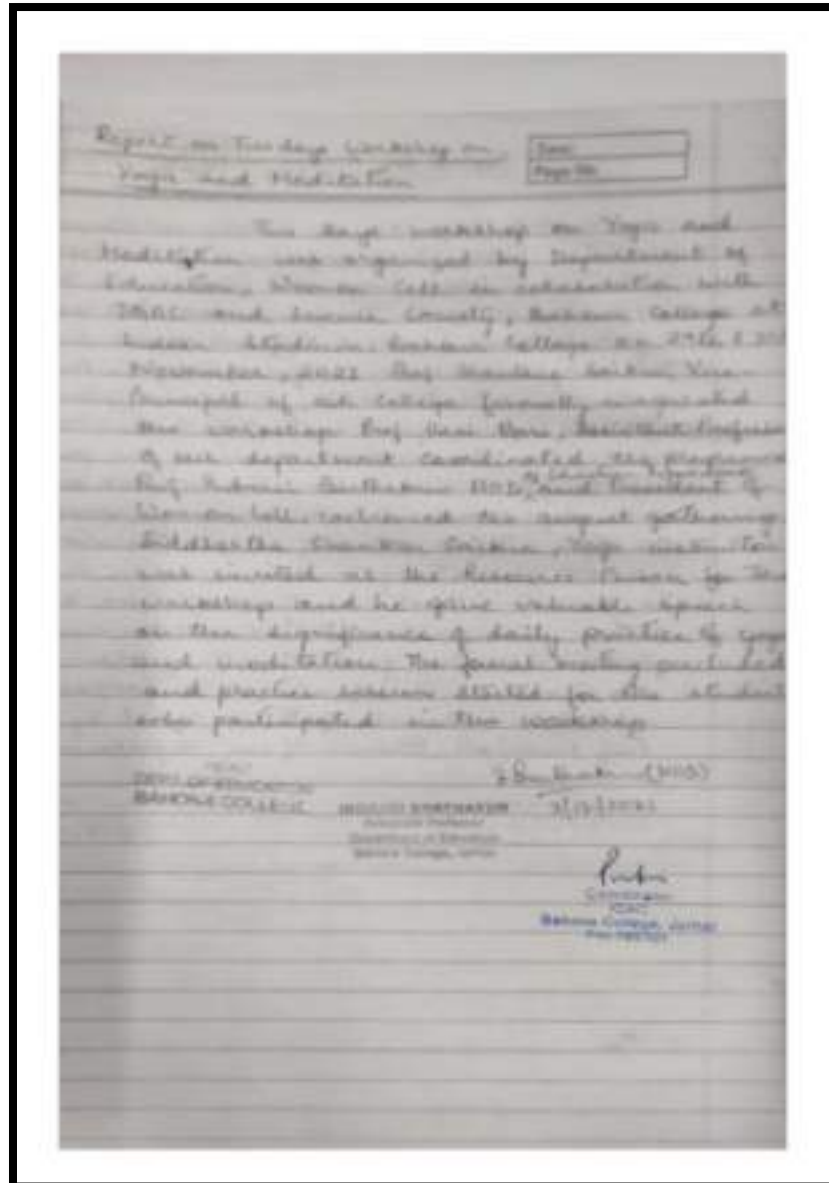 Report on Two days Workshop on
Yoga and Meditation
Date:
Page No.
Two days workshop on Yoga and
Meditation was organized by Department of
Education, Women Cell in collaboration with
IQAC and Science Society, Bahona College at
Indoor Stadium Bahona College on 29th & 30
November, 2021 Prof Saikia, Vice-
Principal of our College formally
the workshop Prof , Assistant Professor
of our department coordinated the programme
Prof HOD, and President of
Women Cell, welcomed the august gathering.
Siddhartha Saikia, Yoga instructor
was invited as the Resource Person for the
workshop and he give valuable speech
on the significance of daily practice of yoga
and meditation. The formal meeting
and practice session started for the student
who participated in the workshop
(HOD)
DEPT. OF EDUCATION
BAHONA COLLEGE
BORTHAKUR
Associate Professor
Department of Education
Bahona College, Jorhat
IQAC
Bahona College, Jorhat